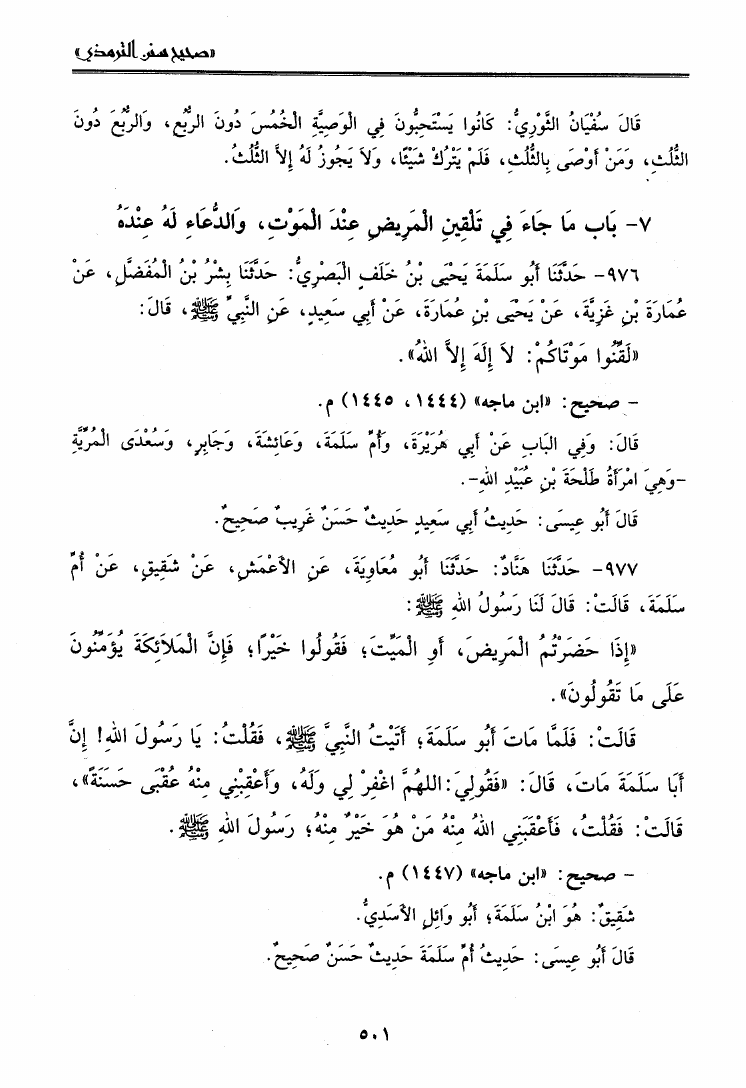 «صحيح سنن الترمذي»
قَالَ سُفْيَانُ الثَّوْرِيُّ: كَانُوا يَسْتَحِبُّونَ فِي الْوَصِيَّةِ الْخُمُسَ دُونَ الرُّبُعِ، وَالرُّبُعَ دُونَ
الثُّلُثِ، وَمَنْ أَوْصَى بِالثُّلُثِ، فَلَمْ يَتْرُكْ شَيْئًا، وَلاَ يَجُوزُ لَهُ إِلاَّ الثُّلُثُ.
٧- بَاب مَا جَاءَ فِي تَلْقِينِ الْمَرِيضِ عِنْدَ الْمَوْتِ، وَالدُّعَاءِ لَهُ عِنْدَهُ
٩٧٦- حَدَّثَنَا أَبُو سَلَمَةَ يَحْيَى بْنُ خَلَفٍ الْبَصْرِيُّ: حَدَّثَنَا بِشْرُ بْنُ الْمُفَضَّلِ، عَنْ
عُمَارَةَ بْنِ غَزِيَّةَ، عَنْ يَحْيَى بْنِ عُمَارَةَ، عَنْ أَبِي سَعِيدٍ، عَنِ النَّبِيِّ ﷺ، قَالَ:
«لَقِّنُوا مَوْتَاكُمْ: لاَ إِلَهَ إِلاَّ اللهُ».
- صحيح: «ابن ماجه» (١٤٤٤، ١٤٤٥) م.
قَالَ: وَفِي الْبَابِ عَنْ أَبِي هُرَيْرَةَ، وَأُمِّ سَلَمَةَ، وَعَائِشَةَ، وَجَابِرٍ، وَسُعْدَى الْمُرِّيَّةِ
-وَهِيَ امْرَأَةُ طَلْحَةَ بْنِ عُبَيْدِ اللهِ-.
قَالَ أَبُو عِيسَى: حَدِيثُ أَبِي سَعِيدٍ حَدِيثٌ حَسَنٌ غَرِيبٌ صَحِيحٌ.
٩٧٧- حَدَّثَنَا هَنَّادٌ: حَدَّثَنَا أَبُو مُعَاوِيَةَ، عَنِ الأَعْمَشِ، عَنْ شَقِيقٍ، عَنْ أُمِّ
سَلَمَةَ، قَالَتْ: قَالَ لَنَا رَسُولُ اللهِ ﷺ:
«إِذَا حَضَرْتُمُ الْمَرِيضَ، أَوِ الْمَيِّتَ؛ فَقُولُوا خَيْرًا؛ فَإِنَّ الْمَلاَئِكَةَ يُؤَمِّنُونَ
عَلَى مَا تَقُولُونَ».
قَالَتْ: فَلَمَّا مَاتَ أَبُو سَلَمَةَ؛ أَتَيْتُ النَّبِيَّ ﷺ، فَقُلْتُ: يَا رَسُولَ اللهِ! إِنَّ
أَبَا سَلَمَةَ مَاتَ، قَالَ: «فَقُولِيَ: اللهُمَّ اغْفِرْ لِي وَلَهُ، وَأَعْقِبْنِي مِنْهُ عُقْبَى حَسَنَةً»،
قَالَتْ: فَقُلْتُ، فَأَعْقَبَنِي اللهُ مِنْهُ مَنْ هُوَ خَيْرٌ مِنْهُ؛ رَسُولَ اللهِ ﷺ.
- صحيح: «ابن ماجه» (١٤٤٧) م.
شَقِيقٌ: هُوَ ابْنُ سَلَمَةَ؛ أَبُو وَائِلٍ الأَسَدِيُّ.
قَالَ أَبُو عِيسَى: حَدِيثُ أُمِّ سَلَمَةَ حَدِيثٌ حَسَنٌ صَحِيحٌ.
٥٠١